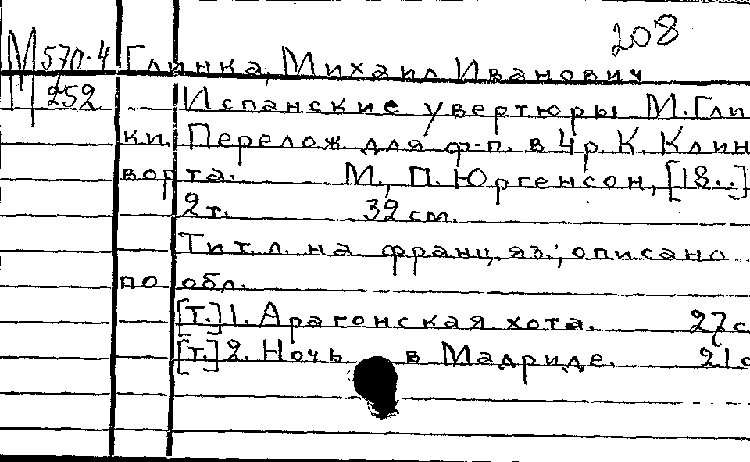 208
М 570-4 Глинка, Михаил Иванович
252 Испанские увертюры М.Гли
ки. Перелож для ф-п. в 4 р. К. Клин
ворта. М., П. Юргенсон, [18..]
2 т. 32 см.
Тит. л. на франц. яз.; описано
по обл.
[т.] 1. Арагонская хота. 27 с
[т.] 2. Ночь в Мадриде. 21 с